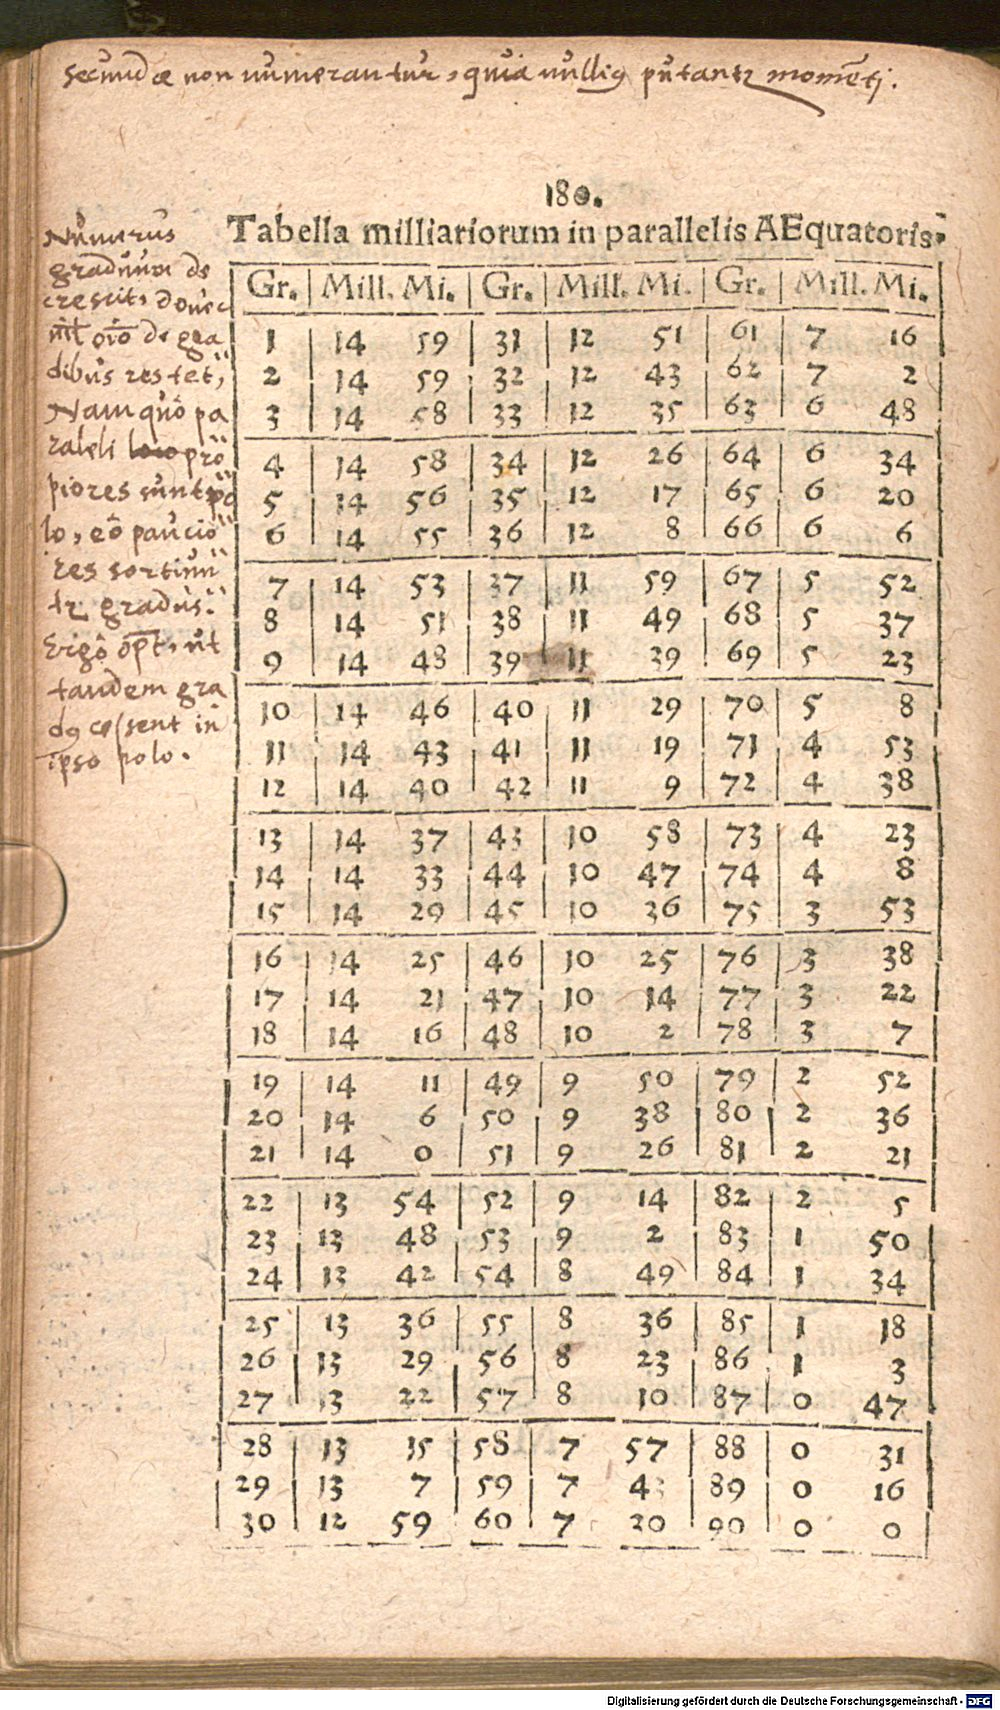 secundæ non numerantur, quia nullig putantr momēti.
180.
Tabella milliariorum in parallelis AEquatoris.
Numerus
graduum de
crescit, donec
de gra
dibus restet,
Nam quô pa
raleli pro
piores sunt
lo, eô paucio
res sortiun
tr gradus.
Ergô ut
tandem gra
dg cessent in
ipso polo.
Gr. Mill. Mi. Gr. Mill. Mi. Gr. Mill. Mi.
1 14 59 31 12 51 61 7 16
2 14 59 32 12 43 62 7 2
3 14 58 33 12 35 63 6 48
4 14 58 34 12 26 64 6 34
5 14 56 35 12 17 65 6 20
6 14 55 36 12 8 66 6 6
7 14 53 37 11 59 67 5 52
8 14 51 38 11 49 68 5 37
9 14 48 39 11 39 69 5 23
10 14 46 40 11 29 70 5 8
11 14 43 41 11 19 71 4 53
12 14 40 42 11 9 72 4 38
13 14 37 43 10 58 73 4 23
14 14 33 44 10 47 74 4 8
15 14 29 45 10 36 75 3 53
16 14 25 46 10 25 76 3 38
17 14 21 47 10 14 77 3 22
18 14 16 48 10 2 78 3 7
19 14 11 49 9 50 79 2 52
20 14 6 50 9 38 80 2 36
21 14 0 51 9 26 81 2 21
22 13 54 52 9 14 82 2 5
23 13 48 53 9 2 83 1 50
24 13 42 54 8 49 84 1 34
25 13 36 55 8 36 85 1 18
26 13 29 56 8 23 86 1 3
27 13 22 57 8 10 87 0 47
28 13 15 58 7 57 88 0 31
29 13 7 59 7 43 89 0 16
30 12 59 60 7 30 90 0 0
Digitalisierung gefördert durch die Deutsche Forschungsgemeinschaft - DFG